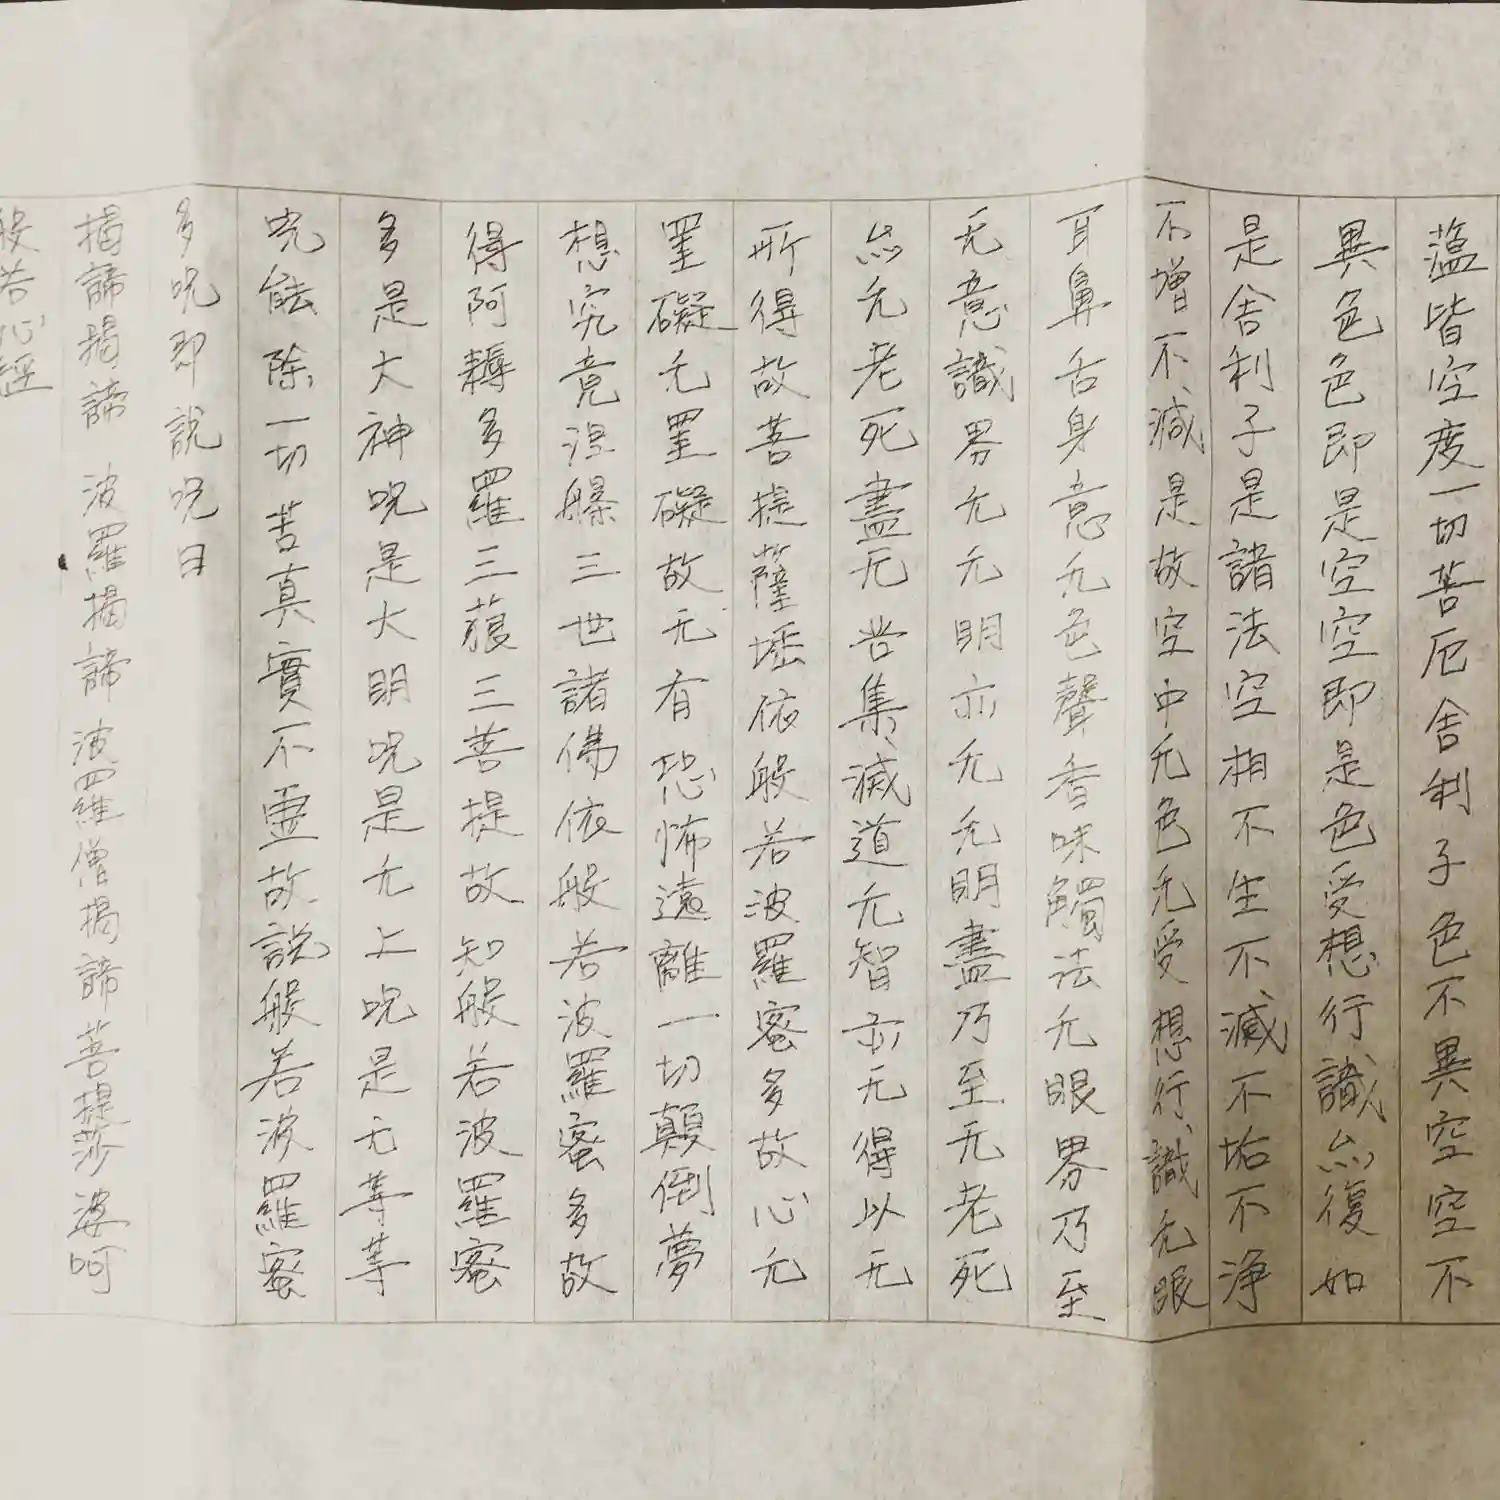 蕰皆空度一切苦厄舎利子色不異空空不
異色色即是空空即是色受想行識亦復如
是舎利子是諸法空相不生不滅不垢不浄
不增不減是故空中无色无受想行識无眼
耳鼻舌身意无色聲香味觸法无眼界乃至
无意識界无无明亦无无明盡乃至无老死
亦无老死盡无苦集滅道无智亦无得以无
所得故菩提薩埵依般若波羅蜜多故心无
罣礙无罣礙故无有恐怖遠離一切顛倒夢
想究竟涅槃三世諸佛依般若波羅蜜多故
得阿耨多羅三藐三菩提故知般若波羅蜜
多是大神呪是大明呪是无上呪是无等等
呪能除一切苦真實不虛故説般若波羅蜜
多呪即説呪曰
揭諦揭諦 波羅揭諦 波羅僧揭諦 菩提莎婆呵
般若心經